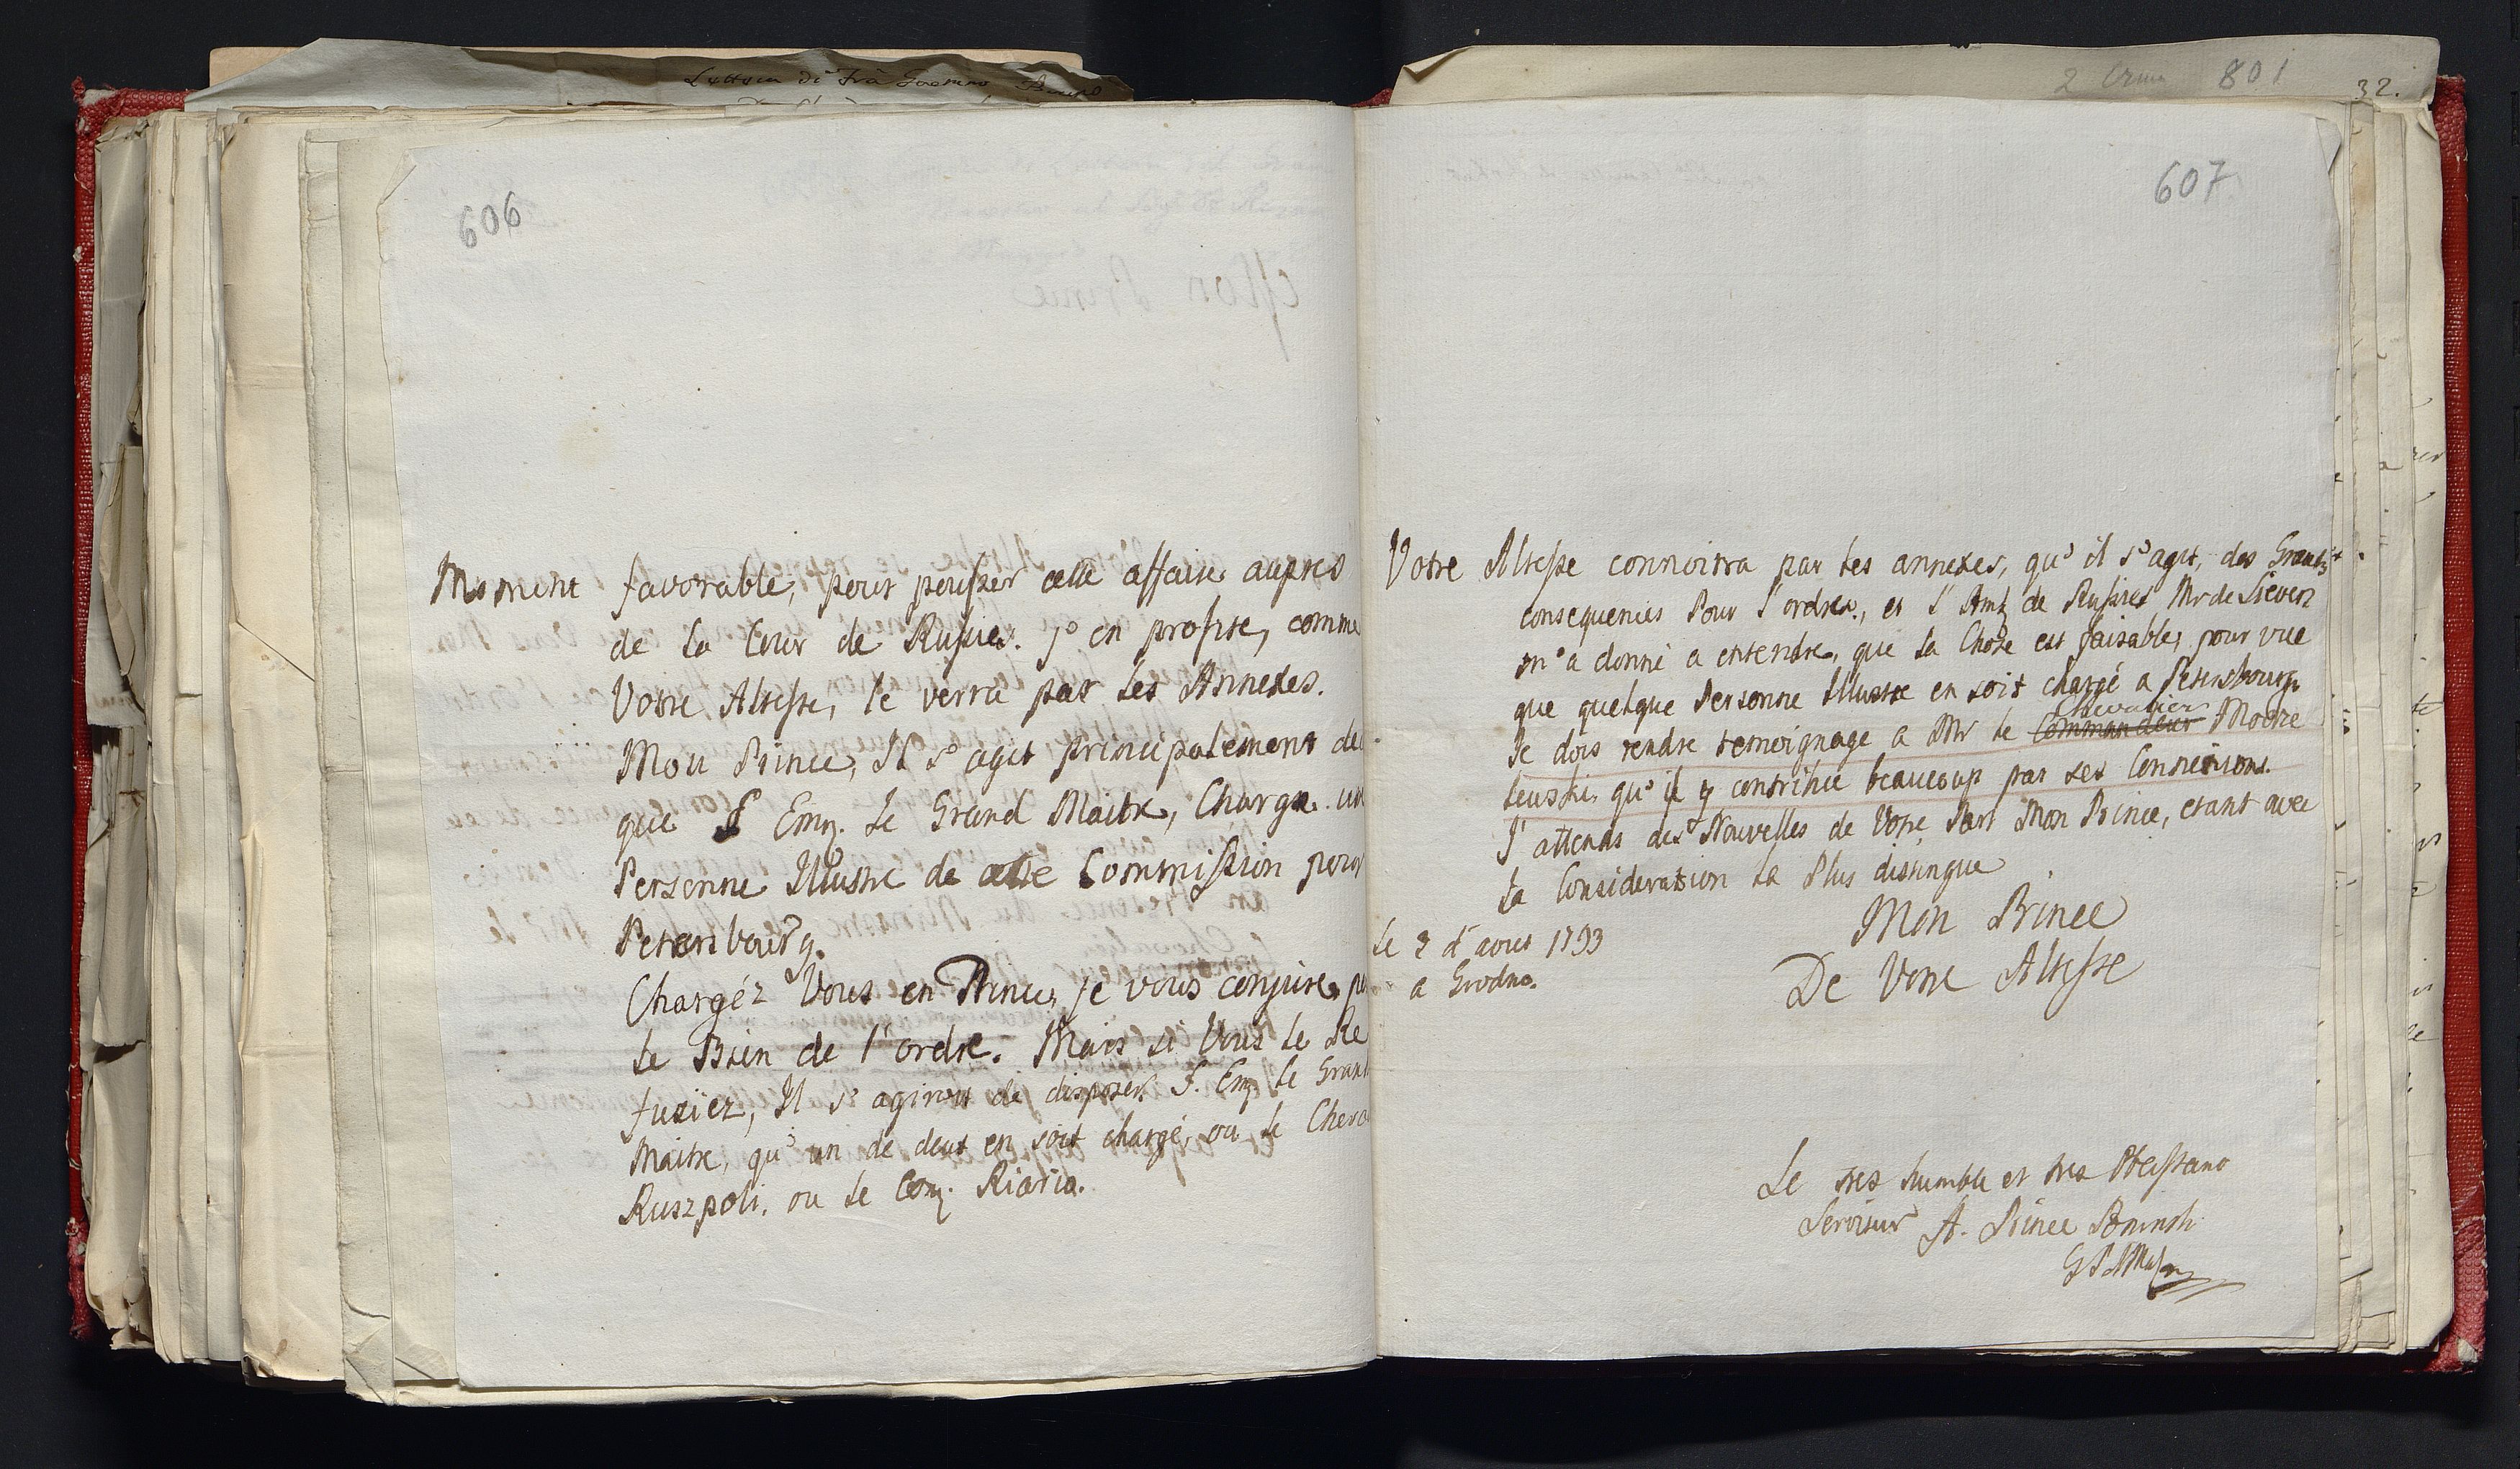 Lettera di Frà
606
Moment favorable, pour pousser cette affaire aupres
de la Cour de Russie. j'en profite, comme
Votre Altesse, le verra par les Annexes.
Mon Prince, Il s'agit principalement de
que S Em. le Grand Maitre, Charge un
Personne Illustre de cette Commission pour
Petersbourg.
Chargéz Vous en Prince, je vous conjure, po
le Bien de l'ordre. Mais si Vous le Re
fusiez, Il s'agirois de disposer S. Em. le Grand
Maitre, qu'un de deux en soit chargé, ou le Cheva
Ruszpoli, ou le Com. Riario.
2 801
32.
607
Votre Altesse connoitra par les annexes, qu'il s'agit, des Grands
consequences Pour l'ordre, et l'Amb de Russies Mr de Sievers
m'a donné a entendre, que la Chose est faisable, pour vue
que quelque Personne Illustre en soit chargé a Petersbourg.
Chevalier
Je dois rendre temoignage a Mr le Commandeur Modze
leuski qu'il y contribue beaucoup par ses Connexions.
J'attends des Nouvelles de Votre Part Mon Prince, etant avec
la Consideration la Plus distingue
Mon Prince
De Votre Altesse
le 2 d'aout 1793
a Grodno.
Le tres humble et tres Obeissant
Serviteur A. Prince Poninski